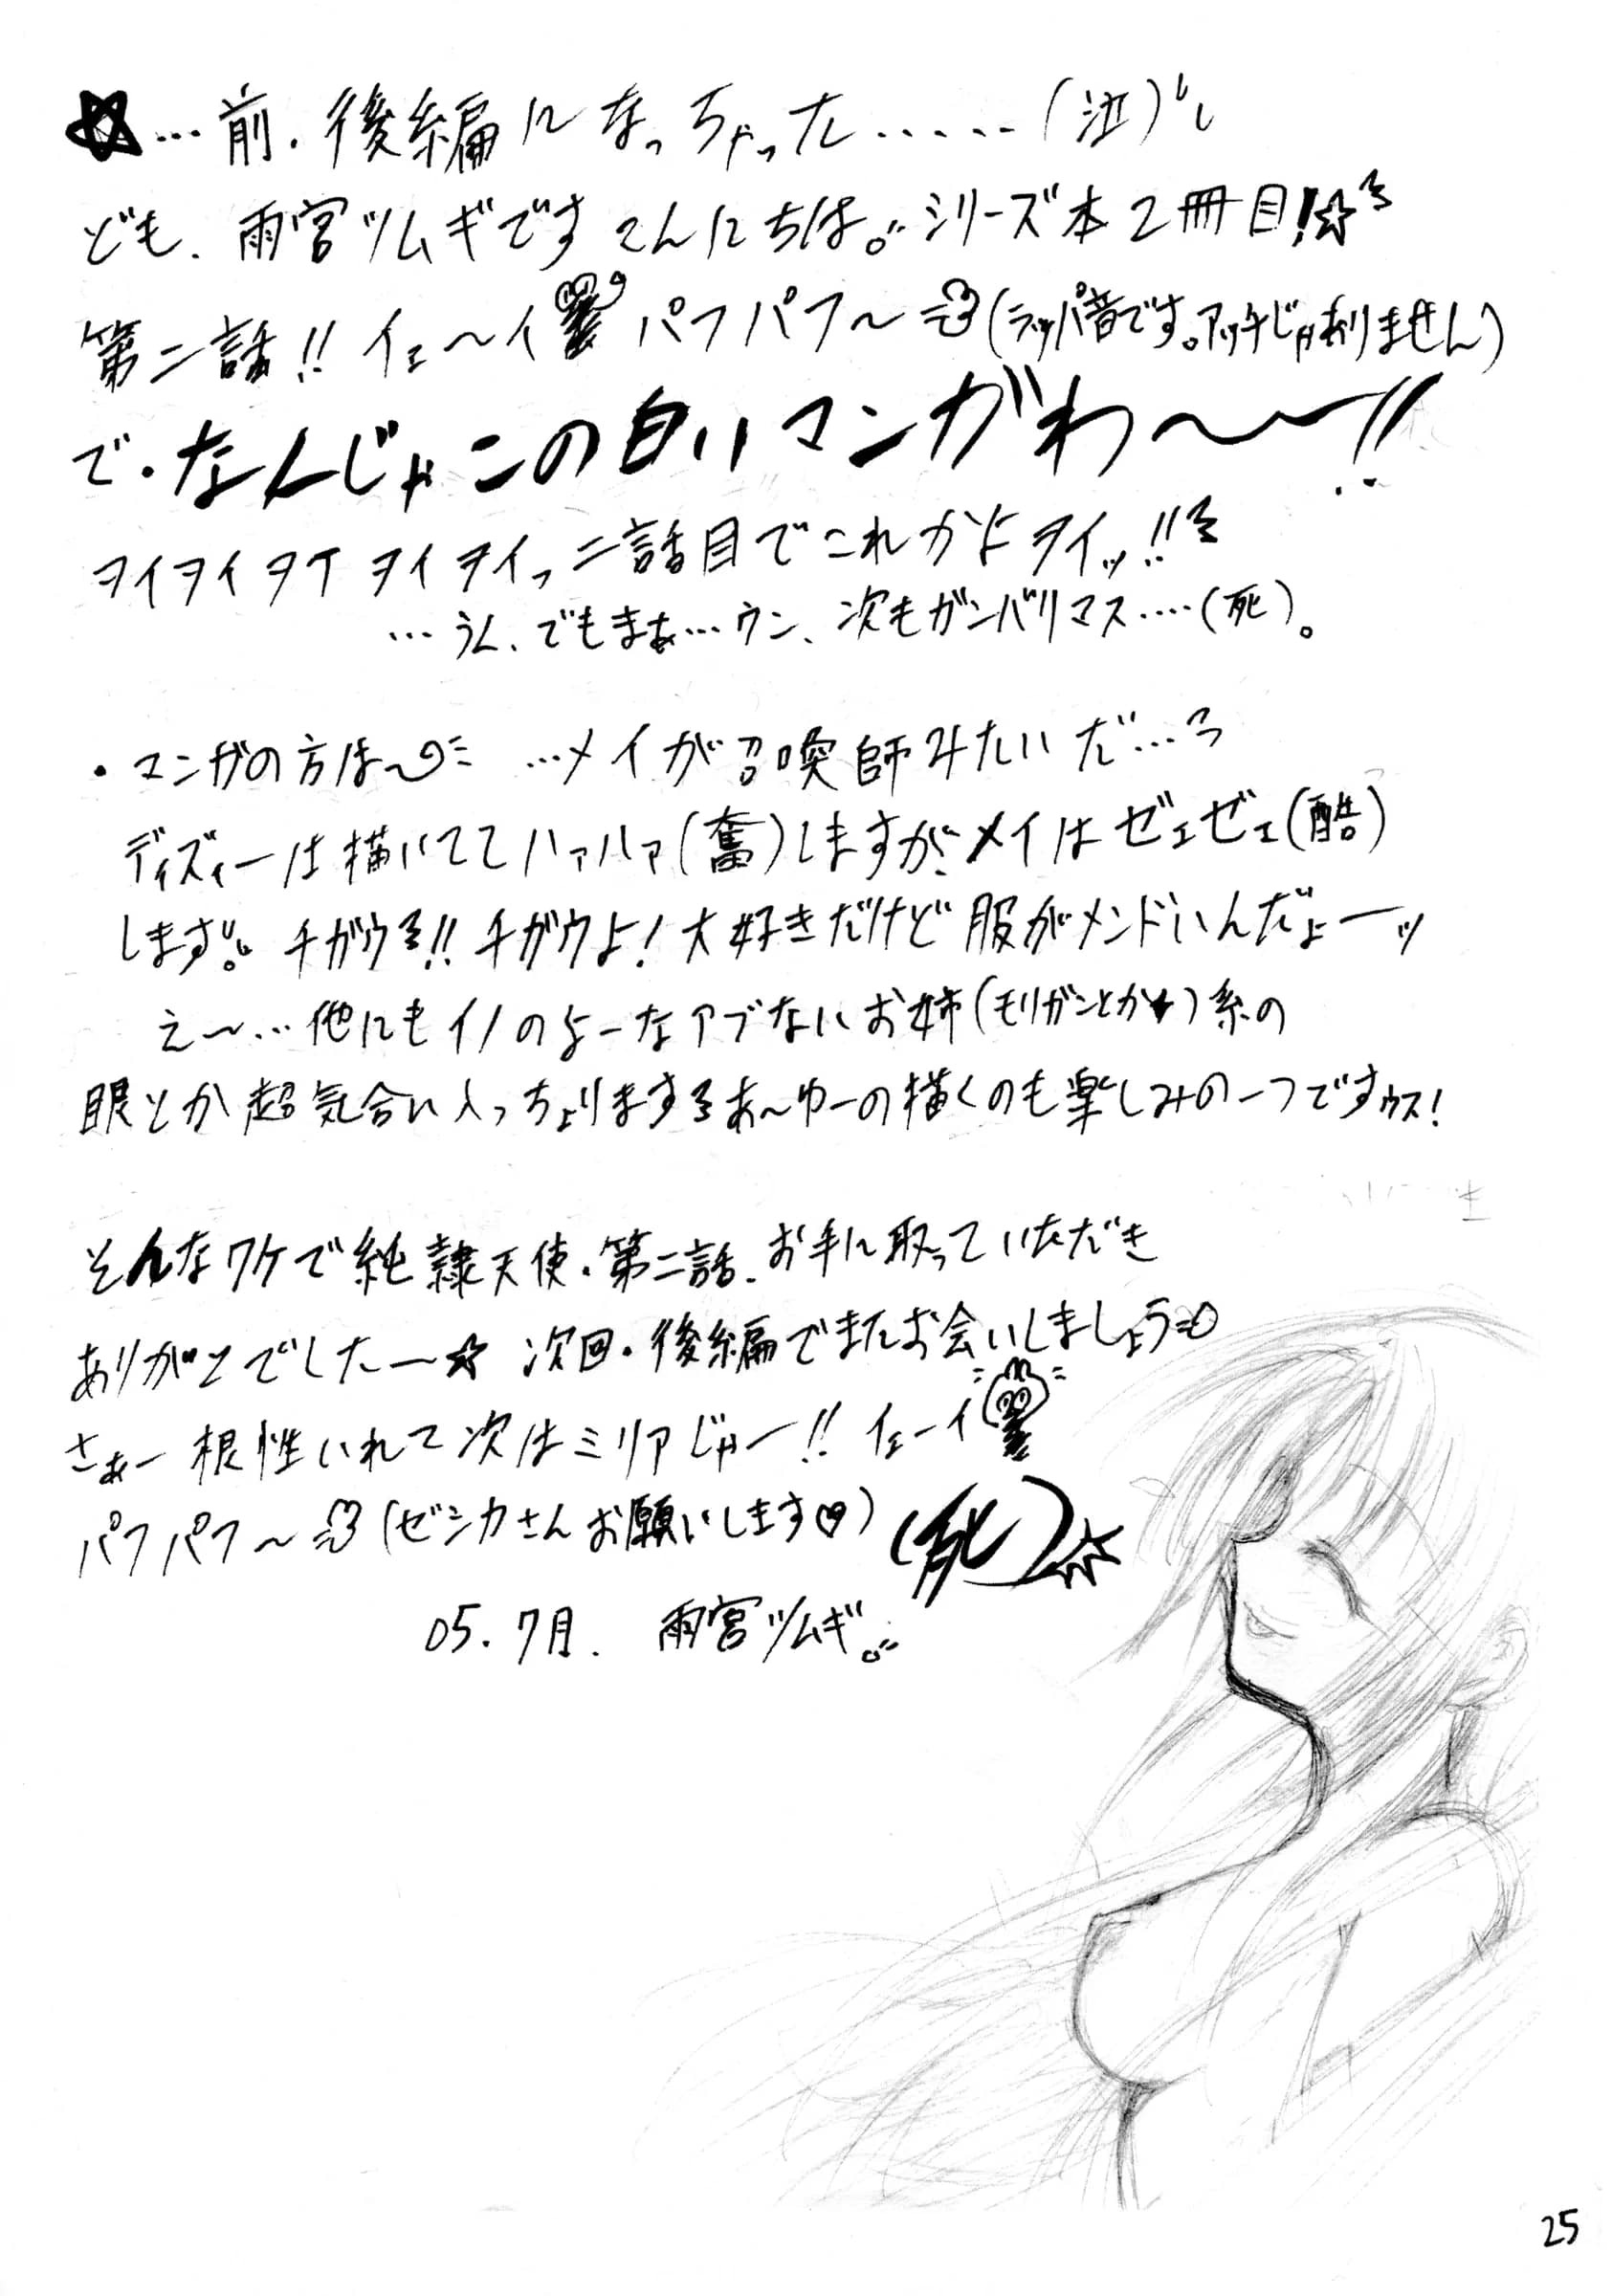 ☆…前.後編になっちゃった……(泣)
ども、雨宮ツムギですこんにちは。シリーズ本2冊目!☆
第二話!!イェ〜イ パフパフ〜(ラッパ音です。アッチじゃありません)
で・なんじゃこの白いマンガわ〜〜!!
ヲイヲイヲイヲイヲイっ二話目でこれかよヲイッ!!
…うん、でもまぁ…ウン、次もガンバリマス……(死)。
・マンガの方は〜 …メイが召喚師みたいだ…
ディズィーは描いててハァハァ(奮)しますが、メイはゼェゼェ(酷)
します。チガウ!!チガウよ!大好きだけど服がメンドいんだよーッ
え〜…他にもイノのよーなアブないお姉(モリガンとか★)系の
眼とか超気合い入っちょりますあ〜ゆーの描くのも楽しみの一つですゥス!
そんなワケで純隷天使・第二話、お手に取っていただき
ありがとでしたー☆ 次回・後編でまたお会いしましょう
さぁー根性いれて次はミリアじゃー!!イェーイ
パフパフ〜(ゼシカさんお願いします♡)(死)☆
05.7月. 雨宮ツムギ。
25